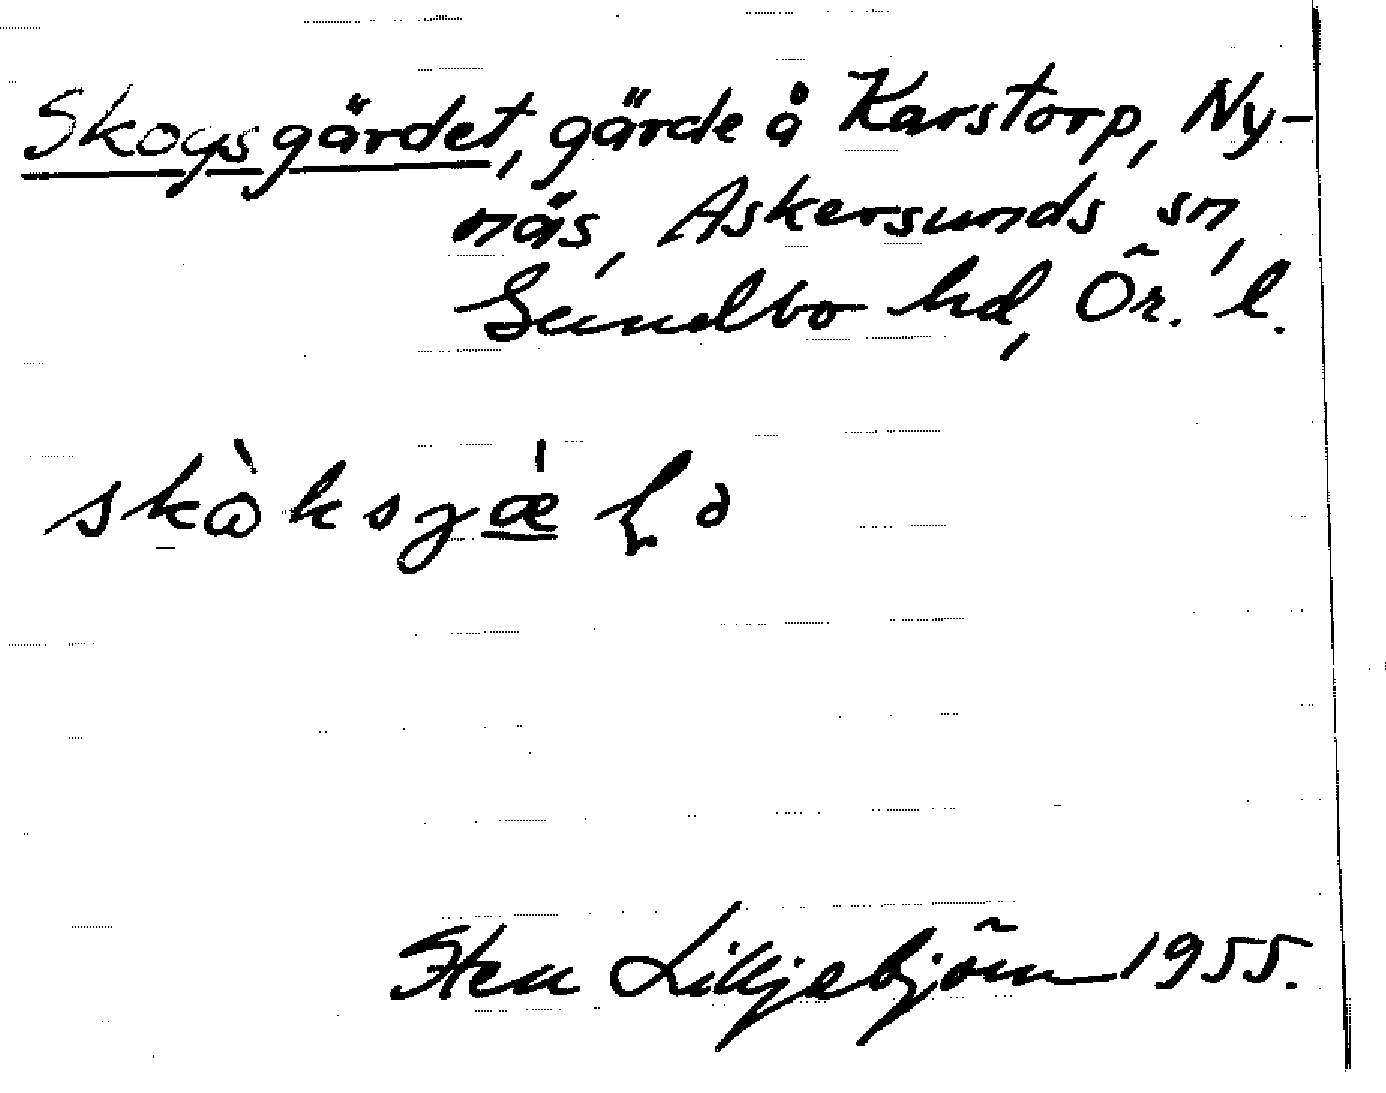 Skogsgärdet, gärde å Karstorp, Ny-
näs, Askersunds sn,
Sundbo hd, Ör. l.
Sten Lilljebjörn 1955.